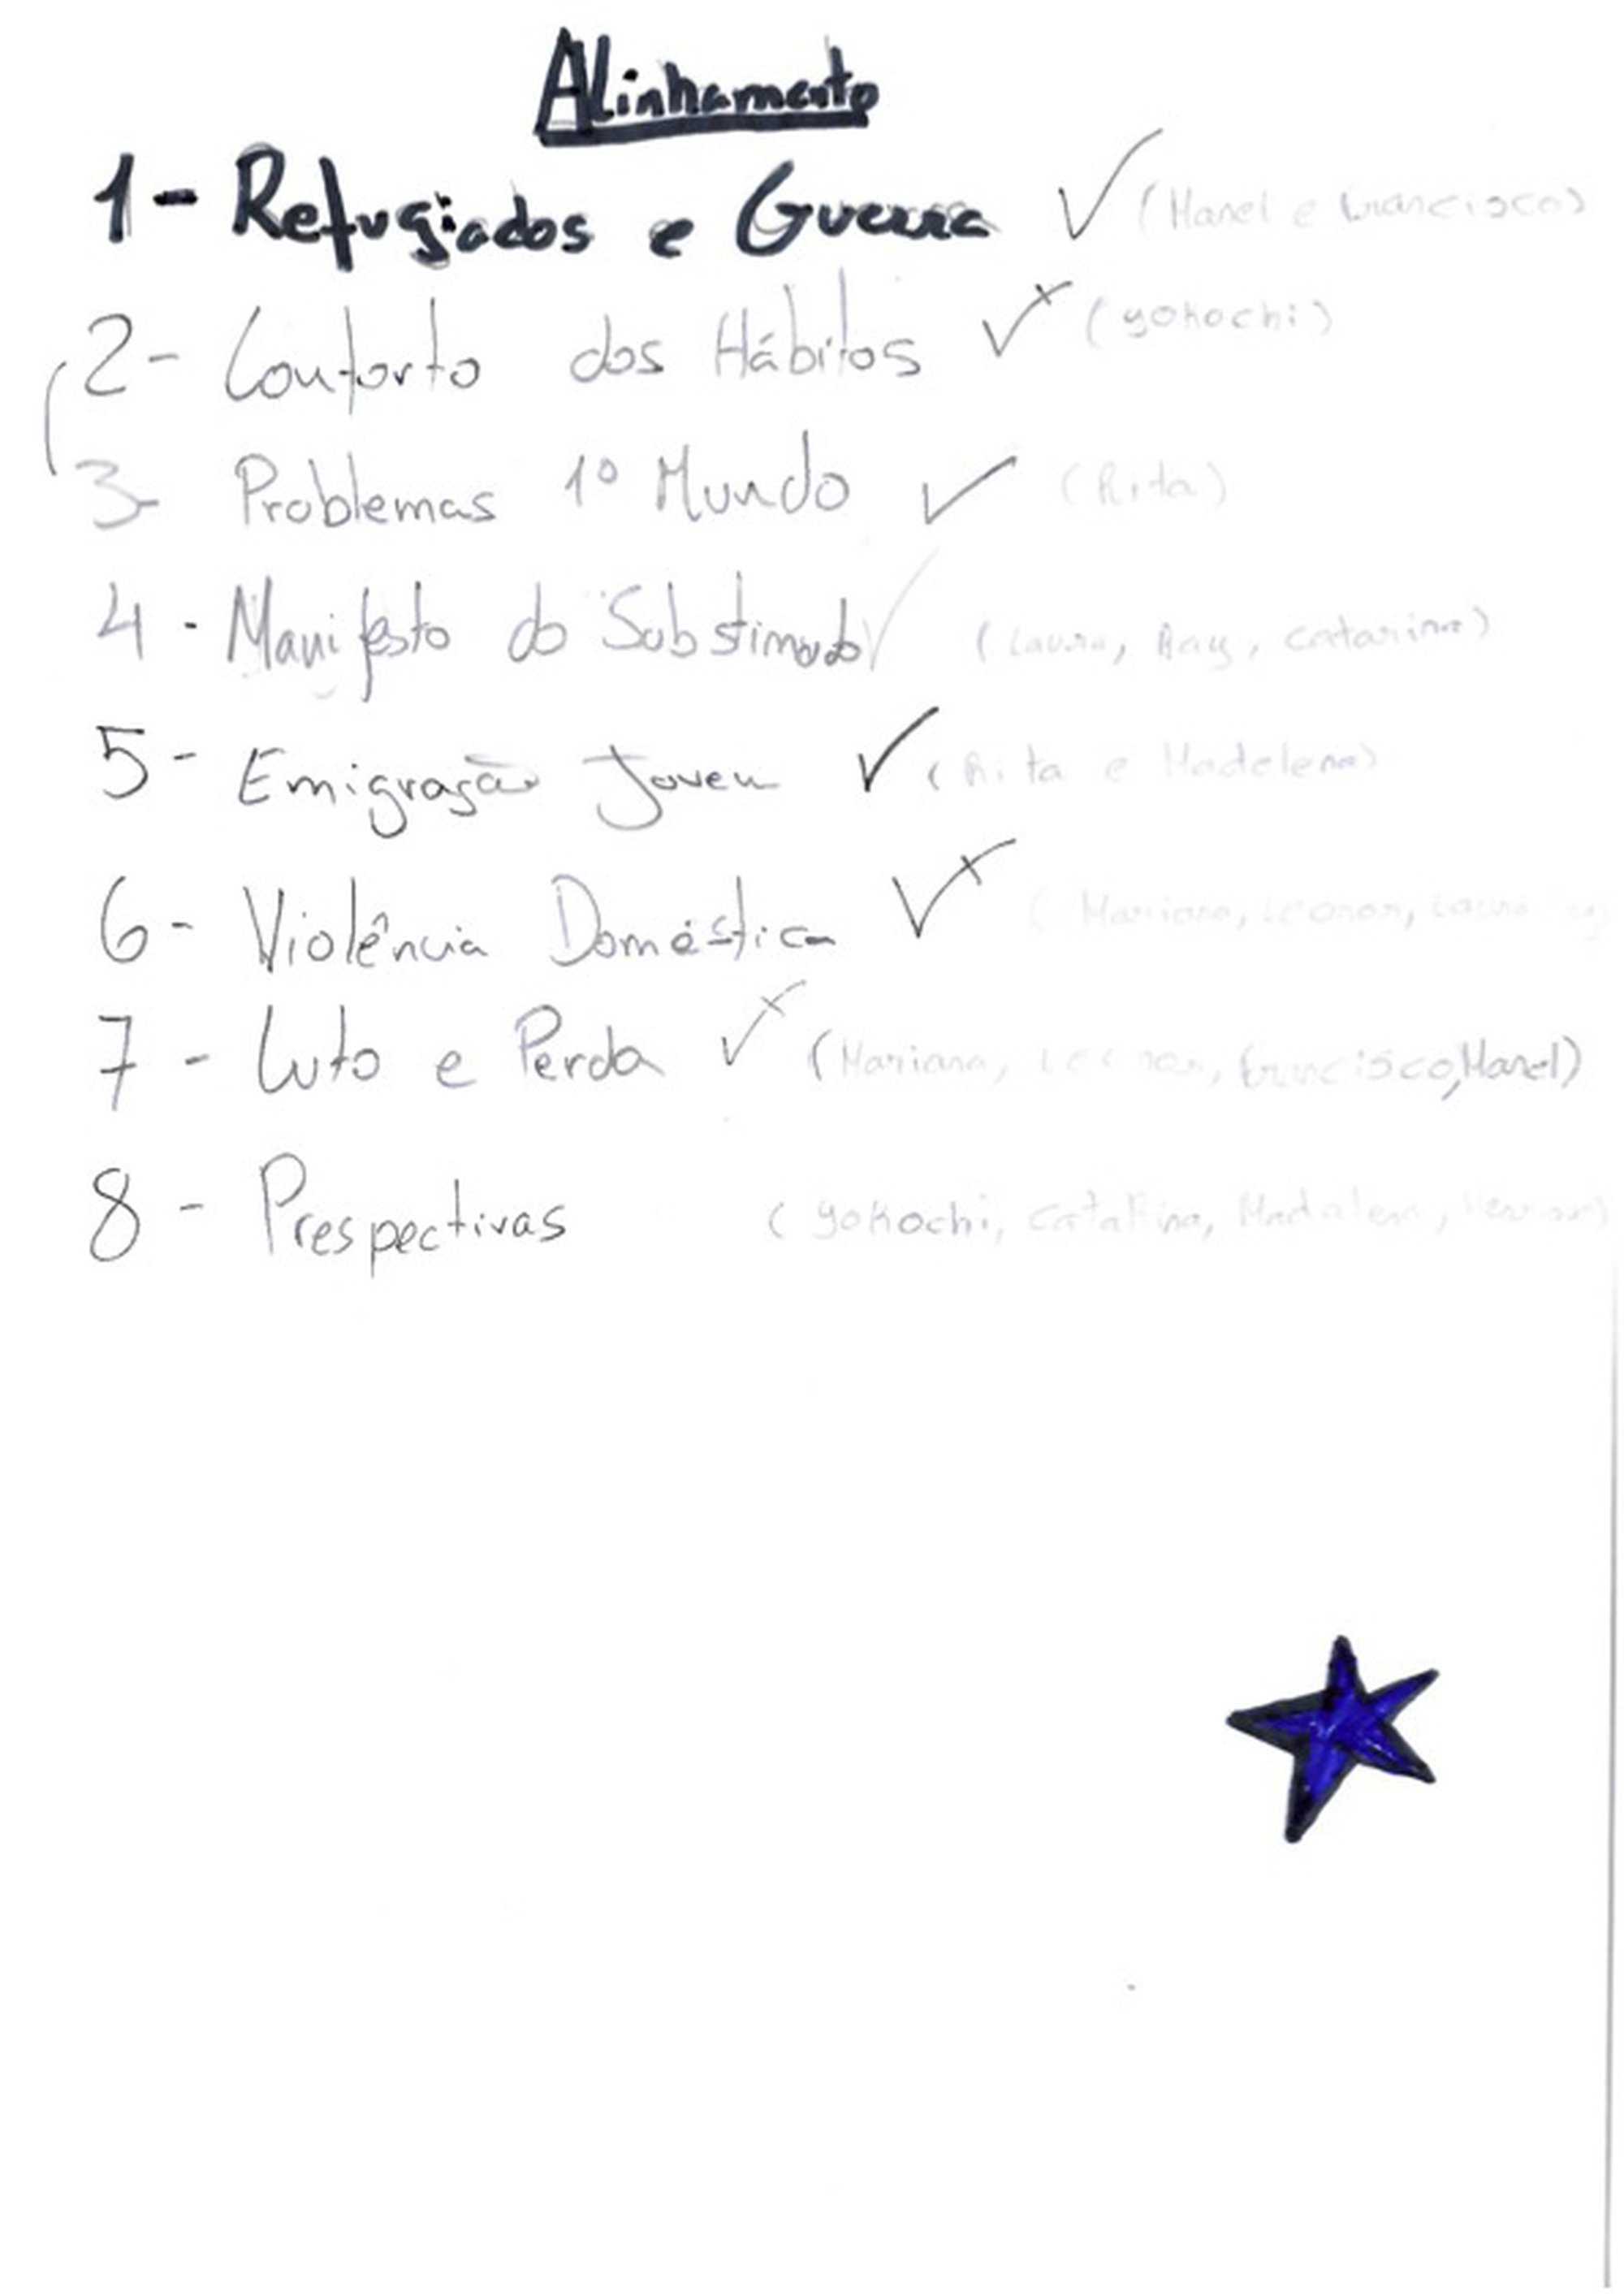 Alinhamento
1- Refugiados e Guerra ✓ (Manel e Francisco)
2- Conforto dos Hábitos ✓ (yokochi)
3- Problemas 1º Mundo ✓ (Rita)
4- Manifesto do Substimado ✓ (Laura, Ray, Catarina)
5- Emigração Jovem ✓ (Rita e Madalena)
6- Violência Doméstica ✓ (Mariana, Leonor, Laura
7- Luto e Perda ✓ (Mariana, Leonor, Francisco, Manel)
8- Prespectivas (yokochi, Catarina, Madalena,